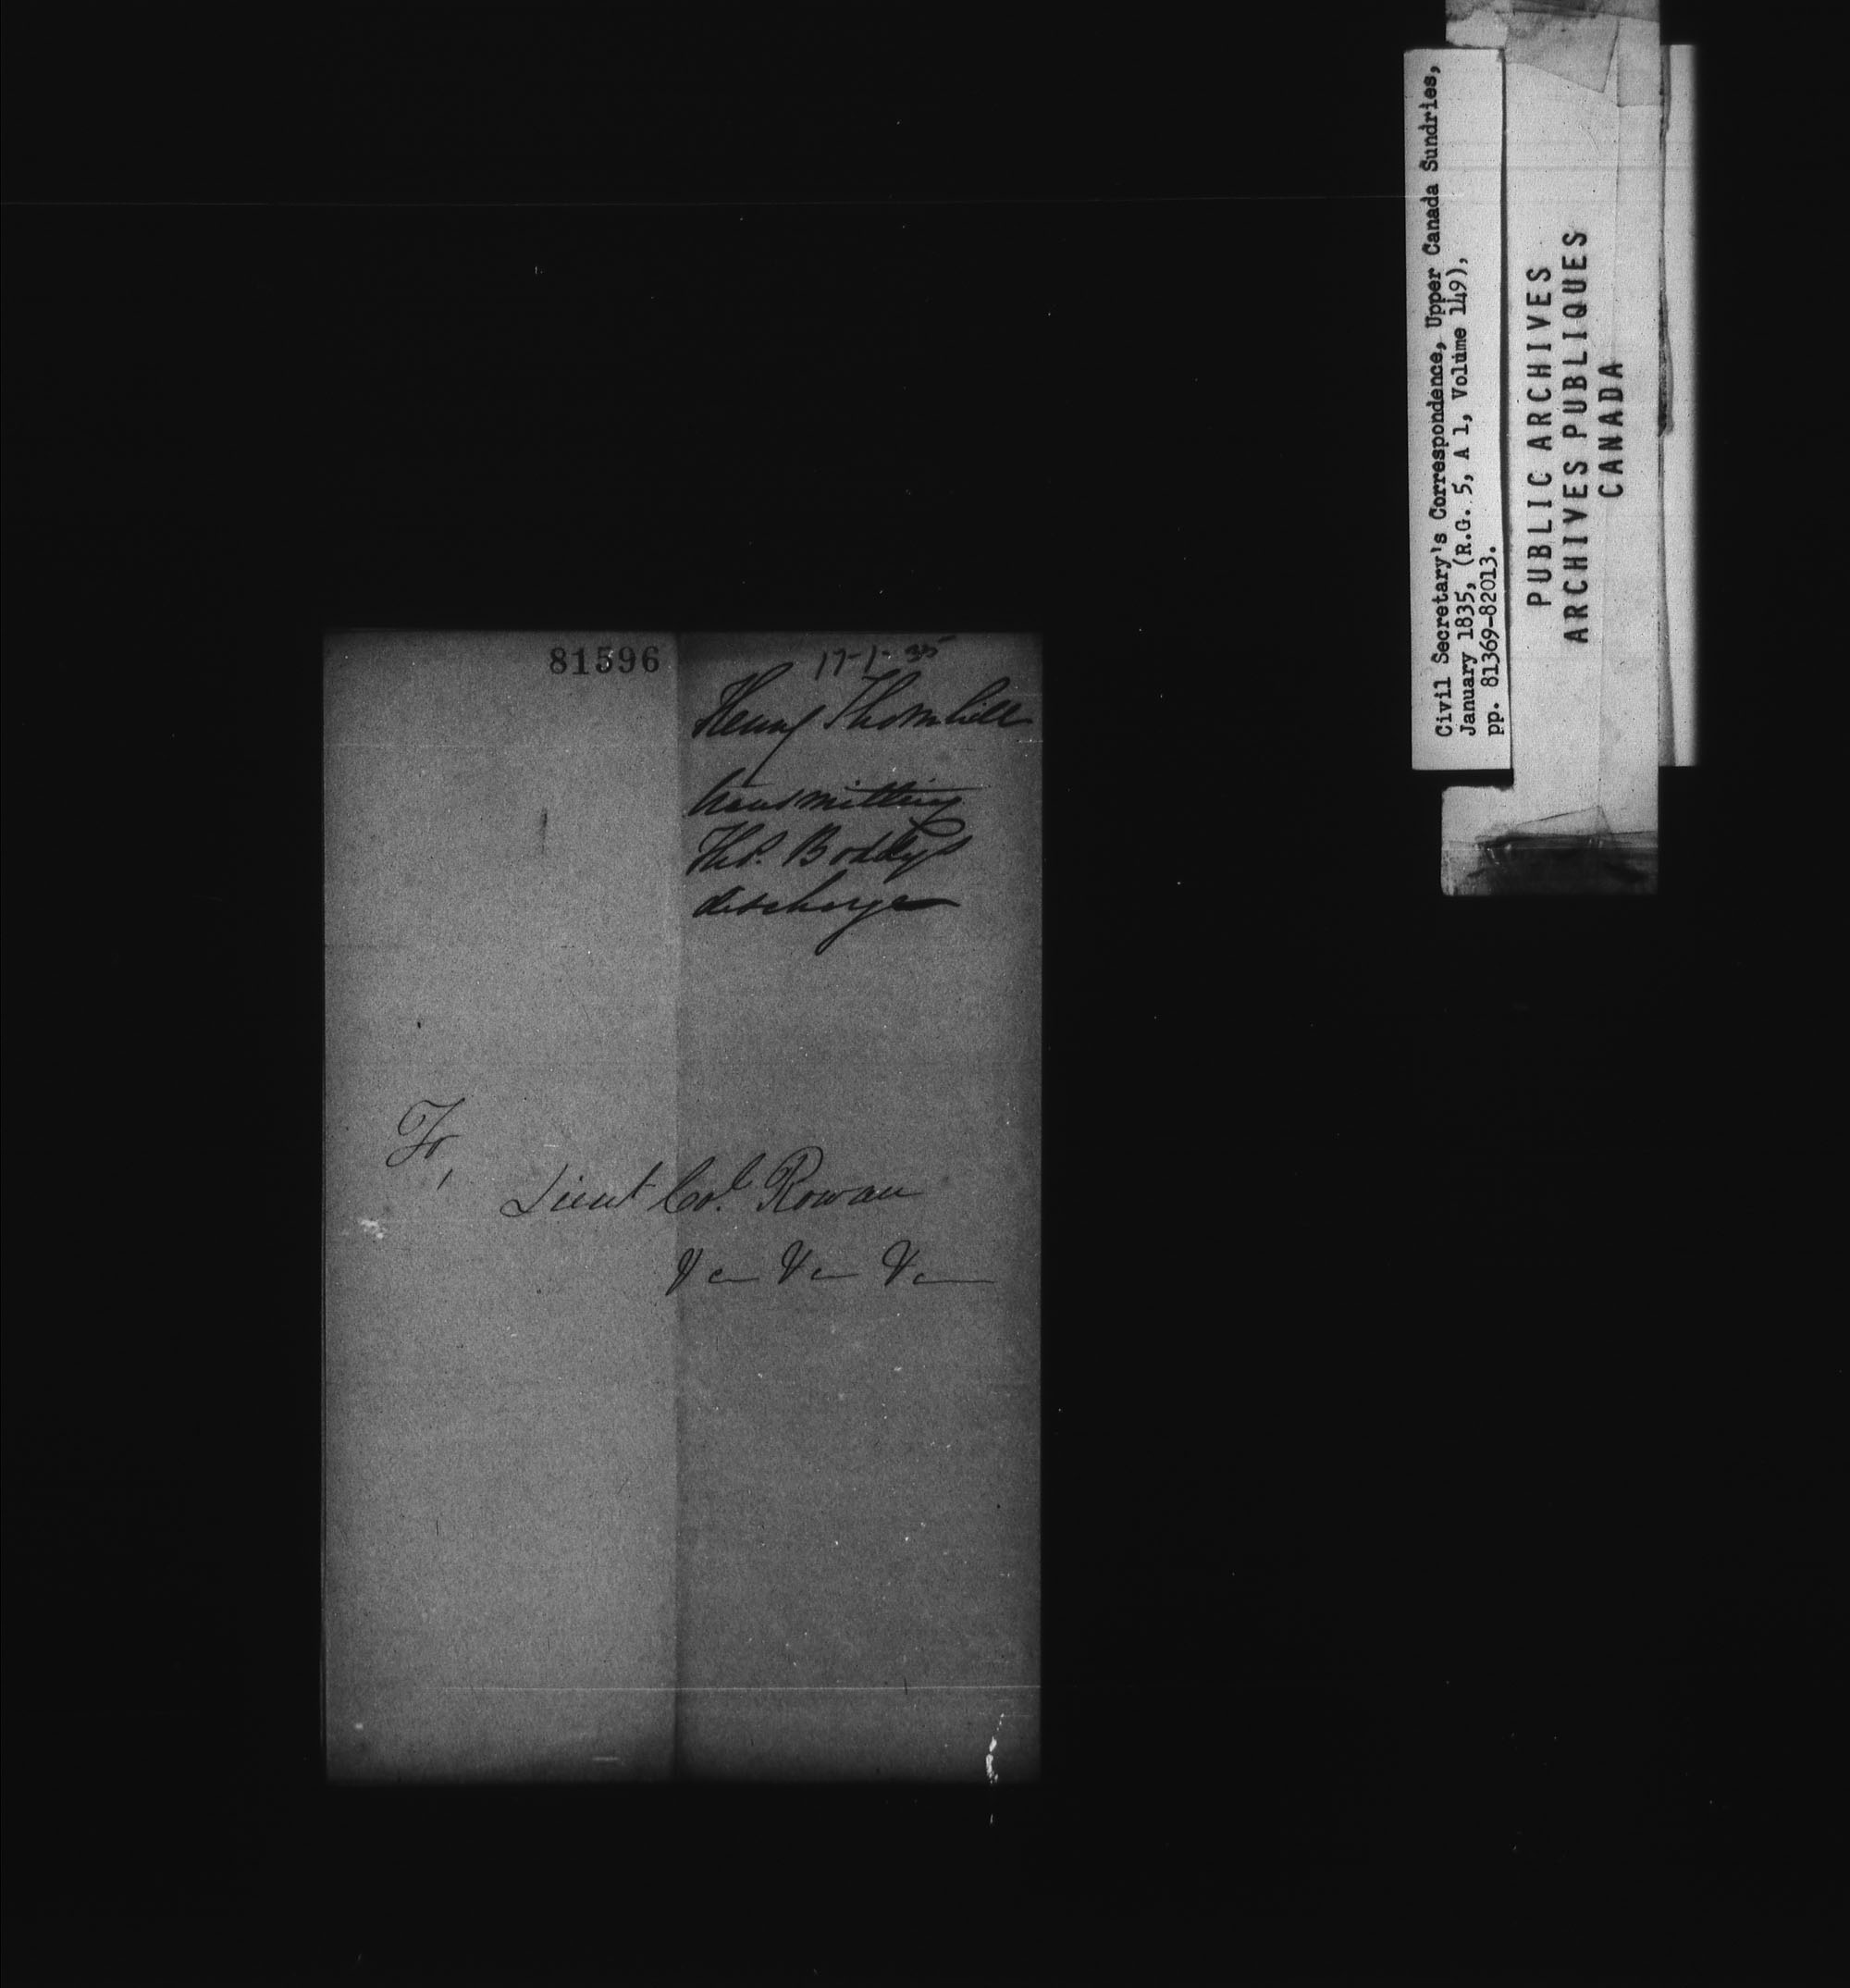 81596
17-1-35
Henry Thornhill
transmitting
Thos. Boddy's
discharge
To,
Lieut Col. Rowan
&c &c &c
Civil Secretary's Correspondence, Upper Canada Sundries,
January 1835, (R.G. 5, A 1, Volume 149),
pp. 81369-82013.
PUBLIC ARCHIVES
ARCHIVES PUBLIQUES
CANADA